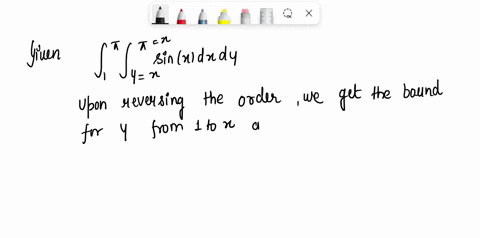 Given ∫₁^π ∫_{y=x}^{π=x} sin(x) dx dy
Upon reversing the order, we get the bound
for y from 1 to x a